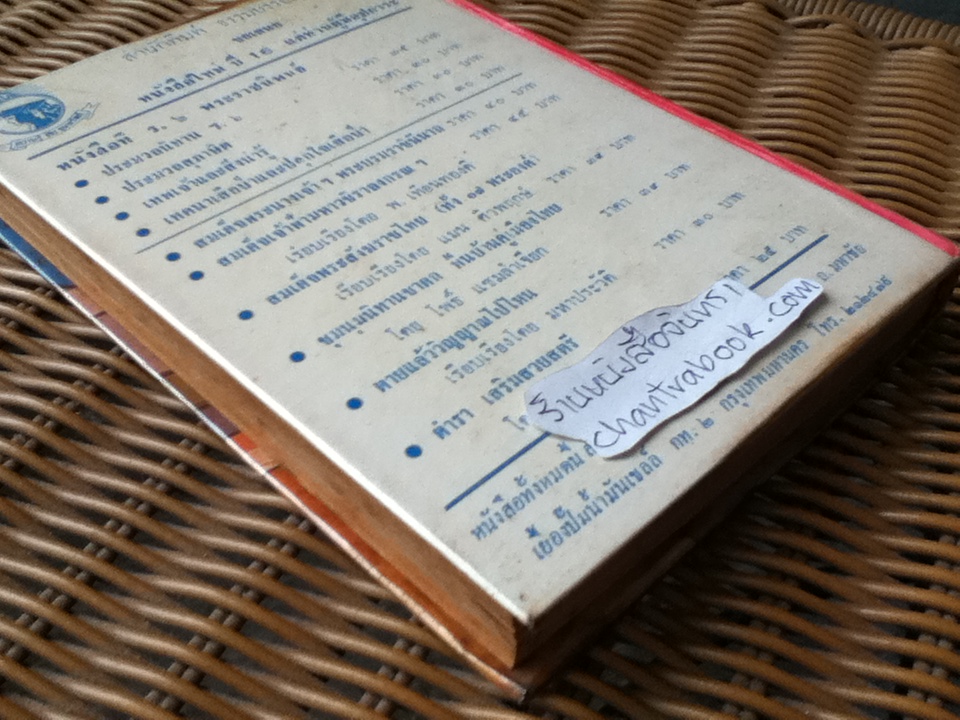 สำนักพิมพ์ ธรรมบรรณาคาร
หนังสือใหม่ ปี 16 แด่ท่านผู้มีอุปการะ
พระราชนิพนธ์
หนังสือที่ ร.๖
ประมวลนิทาน ร.๖ ราคา ๓๕ บาท
ประมวลสุภาษิต ราคา ๓๐ บาท
เทพเจ้าและสิ่งน่ารู้ ราคา ๒๐ บาท
เทศนาเสือป่าและปลุกใจเสือป่า ราคา ๓๐ บาท
สมเด็จพระนางเจ้า ฯ พระบรมราชินีนาถ ราคา ๔๐ บาท
สมเด็จเจ้าฟ้ามหาวชิราลงกรณ ฯ ราคา ๔๕ บาท
เรียบเรียงโดย พ. เทียนทองดี
สมเด็จพระสังฆราชไทย (ทั้ง ๑๗ พระองค์)
เรียบเรียงโดย ราคา ๓๕ บาท
ขุมนุมนิทานชาดก พื้นบ้านคู่เมืองไทย
โดย โพธิ์ แซมลำเจียก ราคา ๓๕ บาท
ตายแล้ววิญญาณไปไหน
เรียบเรียงโดย มหาประวัติ ราคา ๓๐ บาท
ตำรา เสริมสวยสตรี
ราคา ๒๕ บาท
ร้านหนังสือจันทรา
chantrabook.com
หนังสือทั้งหมดนี้ ถ. มหาชัย
เยื้องปั๊มน้ำมันเชลล์ กท. ๒ กรุงเทพมหานคร โทร.